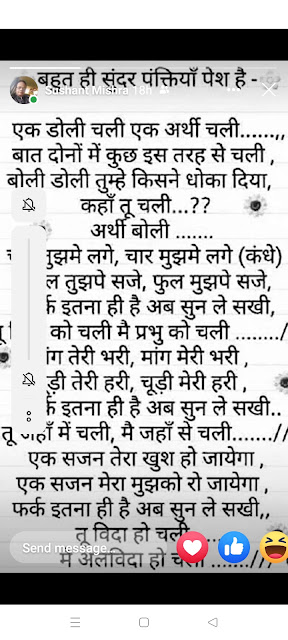 बहुत ही सुंदर पंक्तियाँ पेश है -
Sushant Mishra 18h
एक डोली चली एक अर्थी चली......,,
बात दोनों में कुछ इस तरह से चली ,
बोली डोली तुम्हे किसने धोका दिया,
कहाँ तू चली...??
अर्थी बोली .......
मुझमे लगे, चार मुझमे लगे (कंधे)
तुझपे सजे, फुल मुझपे सजे,
इतना ही है अब सुन ले सखी,
को चली मै प्रभु को चली ........//
तेरी भरी, मांग मेरी भरी ,
तेरी हरी, चूड़ी मेरी हरी ,
इतना ही है अब सुन ले सखी..
तू में चली, मै जहाँ से चली.......//
एक सजन तेरा खुश हो जायेगा ,
एक सजन मेरा मुझको रो जायेगा ,
फर्क इतना ही है अब सुन ले सखी,,
तू विदा हो चली
Send message...
मै अलविदा हो चली .......///